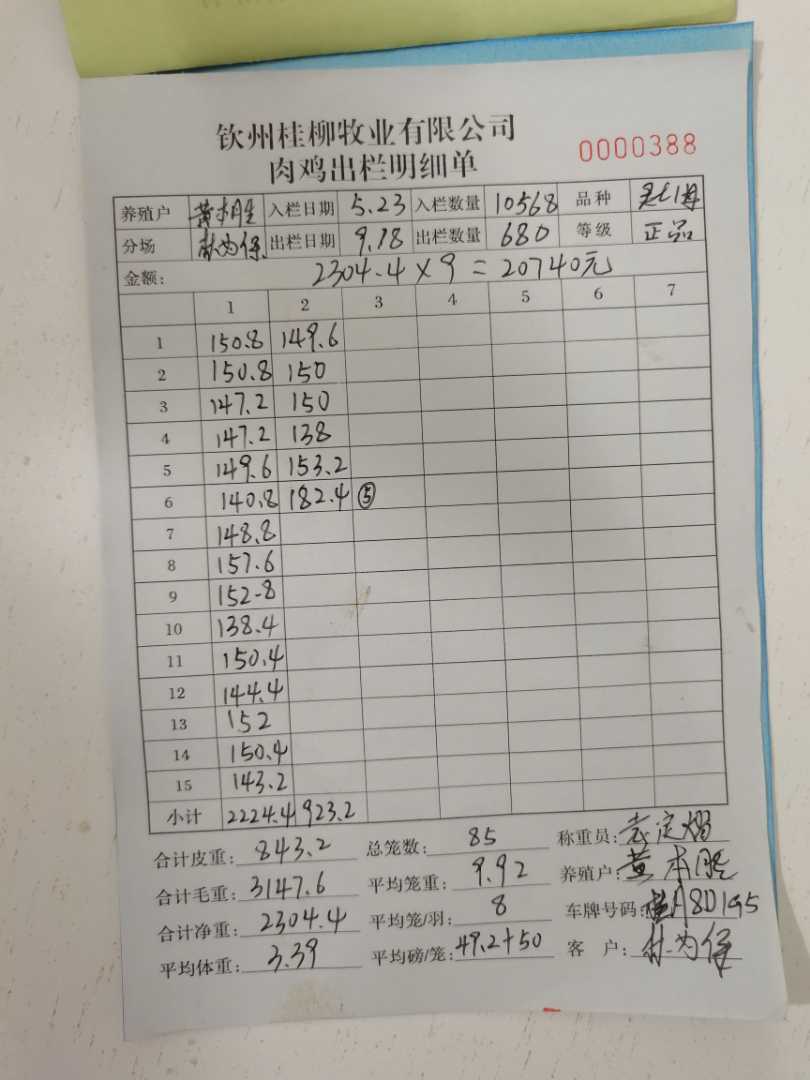 钦州桂柳牧业有限公司
肉鸡出栏明细单
0000388
养殖户 黄本胜 入栏日期 5.23 入栏数量 10568 品种
分场 林为保 出栏日期 9.18 出栏数量 680 等级 正品
金额: 2304.4×9=20740元
1 2 3 4 5 6 7
1 150.8 149.6
2 150.8 150
3 147.2 150
4 147.2 138
5 149.6 153.2
6 140.8 182.4 ⑤
7 148.8
8 157.6
9 152.8
10 138.4
11 150.4
12 144.4
13 152
14 150.4
15 143.2
小计 2224.4 923.2
合计皮重: 843.2 总笼数: 85 称重员:
合计毛重: 3147.6 平均笼重: 9.92 养殖户: 黄本胜
合计净重: 2304.4 平均笼/羽: 8 车牌号码:
平均体重: 3.39 平均磅/笼: 49.2+50 客户: 林为保